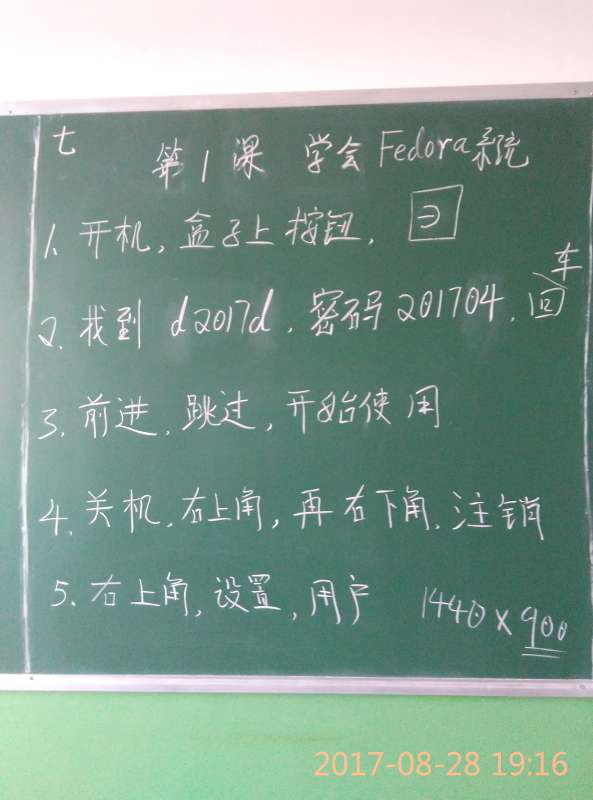 七
第1课 学会Fedora系统
1. 开机, 盒子上按钮,
2. 找到 d2017d, 密码 201704, 回车
3. 前进, 跳过, 开始使用
4. 关机, 右上角, 再右下角, 注销
5. 右上角, 设置, 用户 1440×900
2017-08-28 19:16